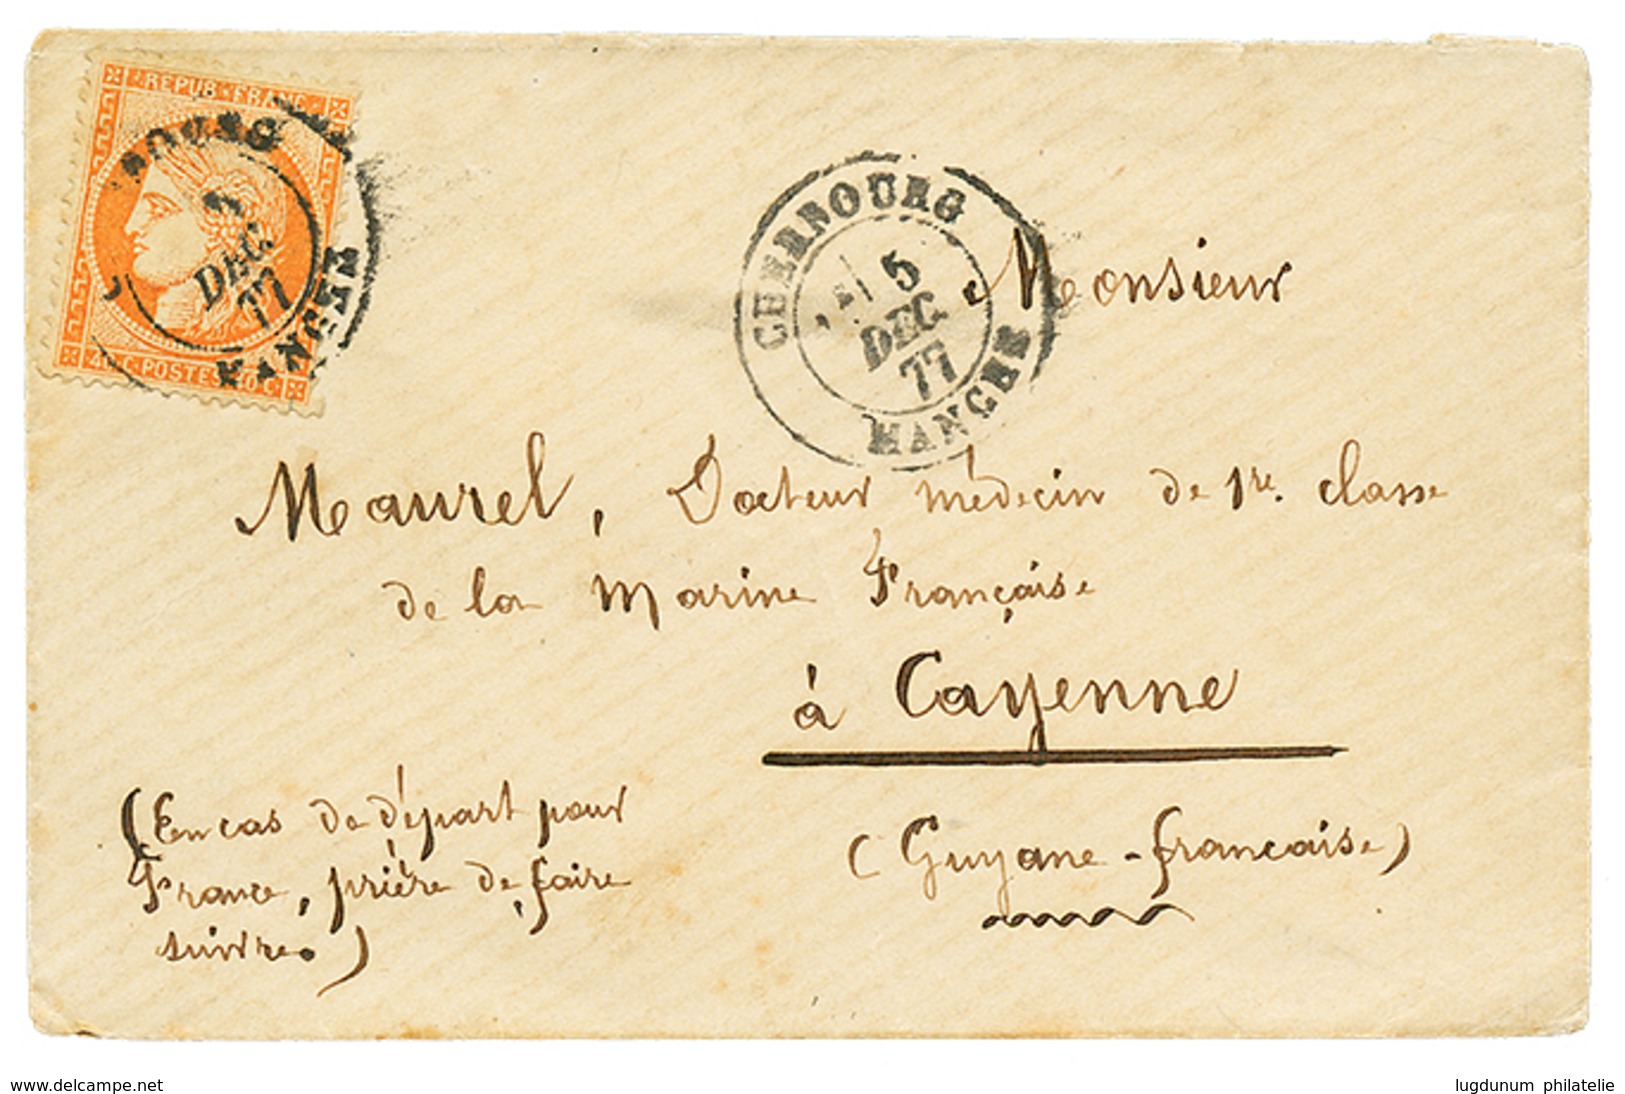 REPUB FRANC
40 C POSTES 40 C
5
DEC.
77
MANCHE
CHERBOURG
5
DEC.
77
MANCHE
Monsieur
Maurel, Docteur médecin de 1re. classe
de la Marine Française
à Cayenne
(Guyane-française)
(En cas de départ pour
France, prière de faire
suivre.)
www.delcampe.net
lugdunum philatelie